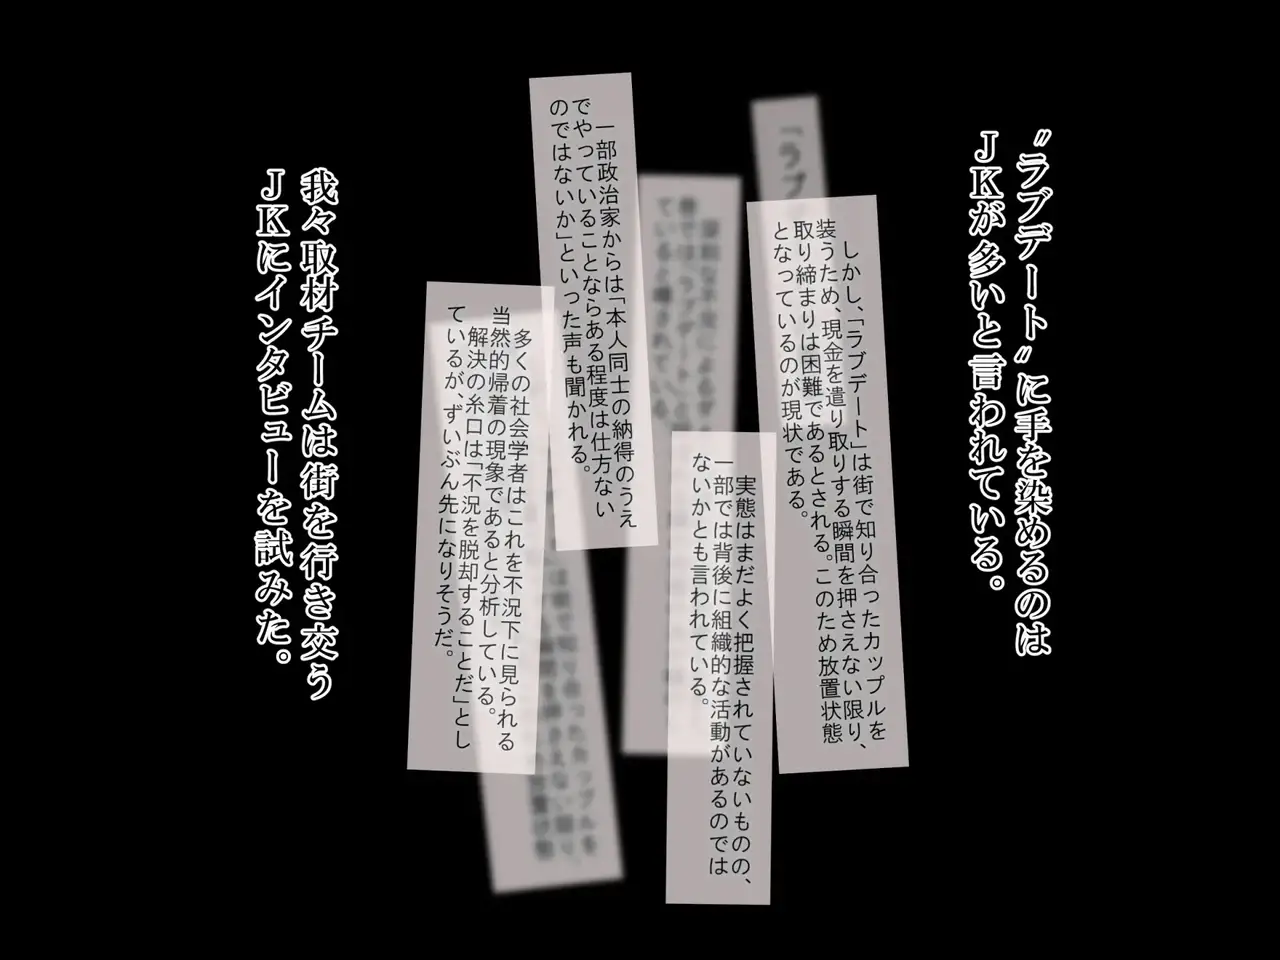 〝ラブデート〟に手を染めるのは
ＪＫが多いと言われている。
「ラブ
しかし、「ラブデート」は街で知り合ったカップルを
装うため、現金を遣り取りする瞬間を押さえない限り、
取り締まりは困難であるとされる。このため放置状態
となっているのが現状である。
実態はまだよく把握されていないものの、
一部では背後に組織的な活動があるのでは
ないかとも言われている。
一部政治家からは「本人同士の納得のうえ
でやっていることならある程度は仕方ない
のではないか」といった声も聞かれる。
多くの社会学者はこれを不況下に見られる
当然的帰着の現象であると分析している。
解決の糸口は「不況を脱却することだ」とし
ているが、ずいぶん先になりそうだ。
我々取材チームは街を行き交う
ＪＫにインタビューを試みた。